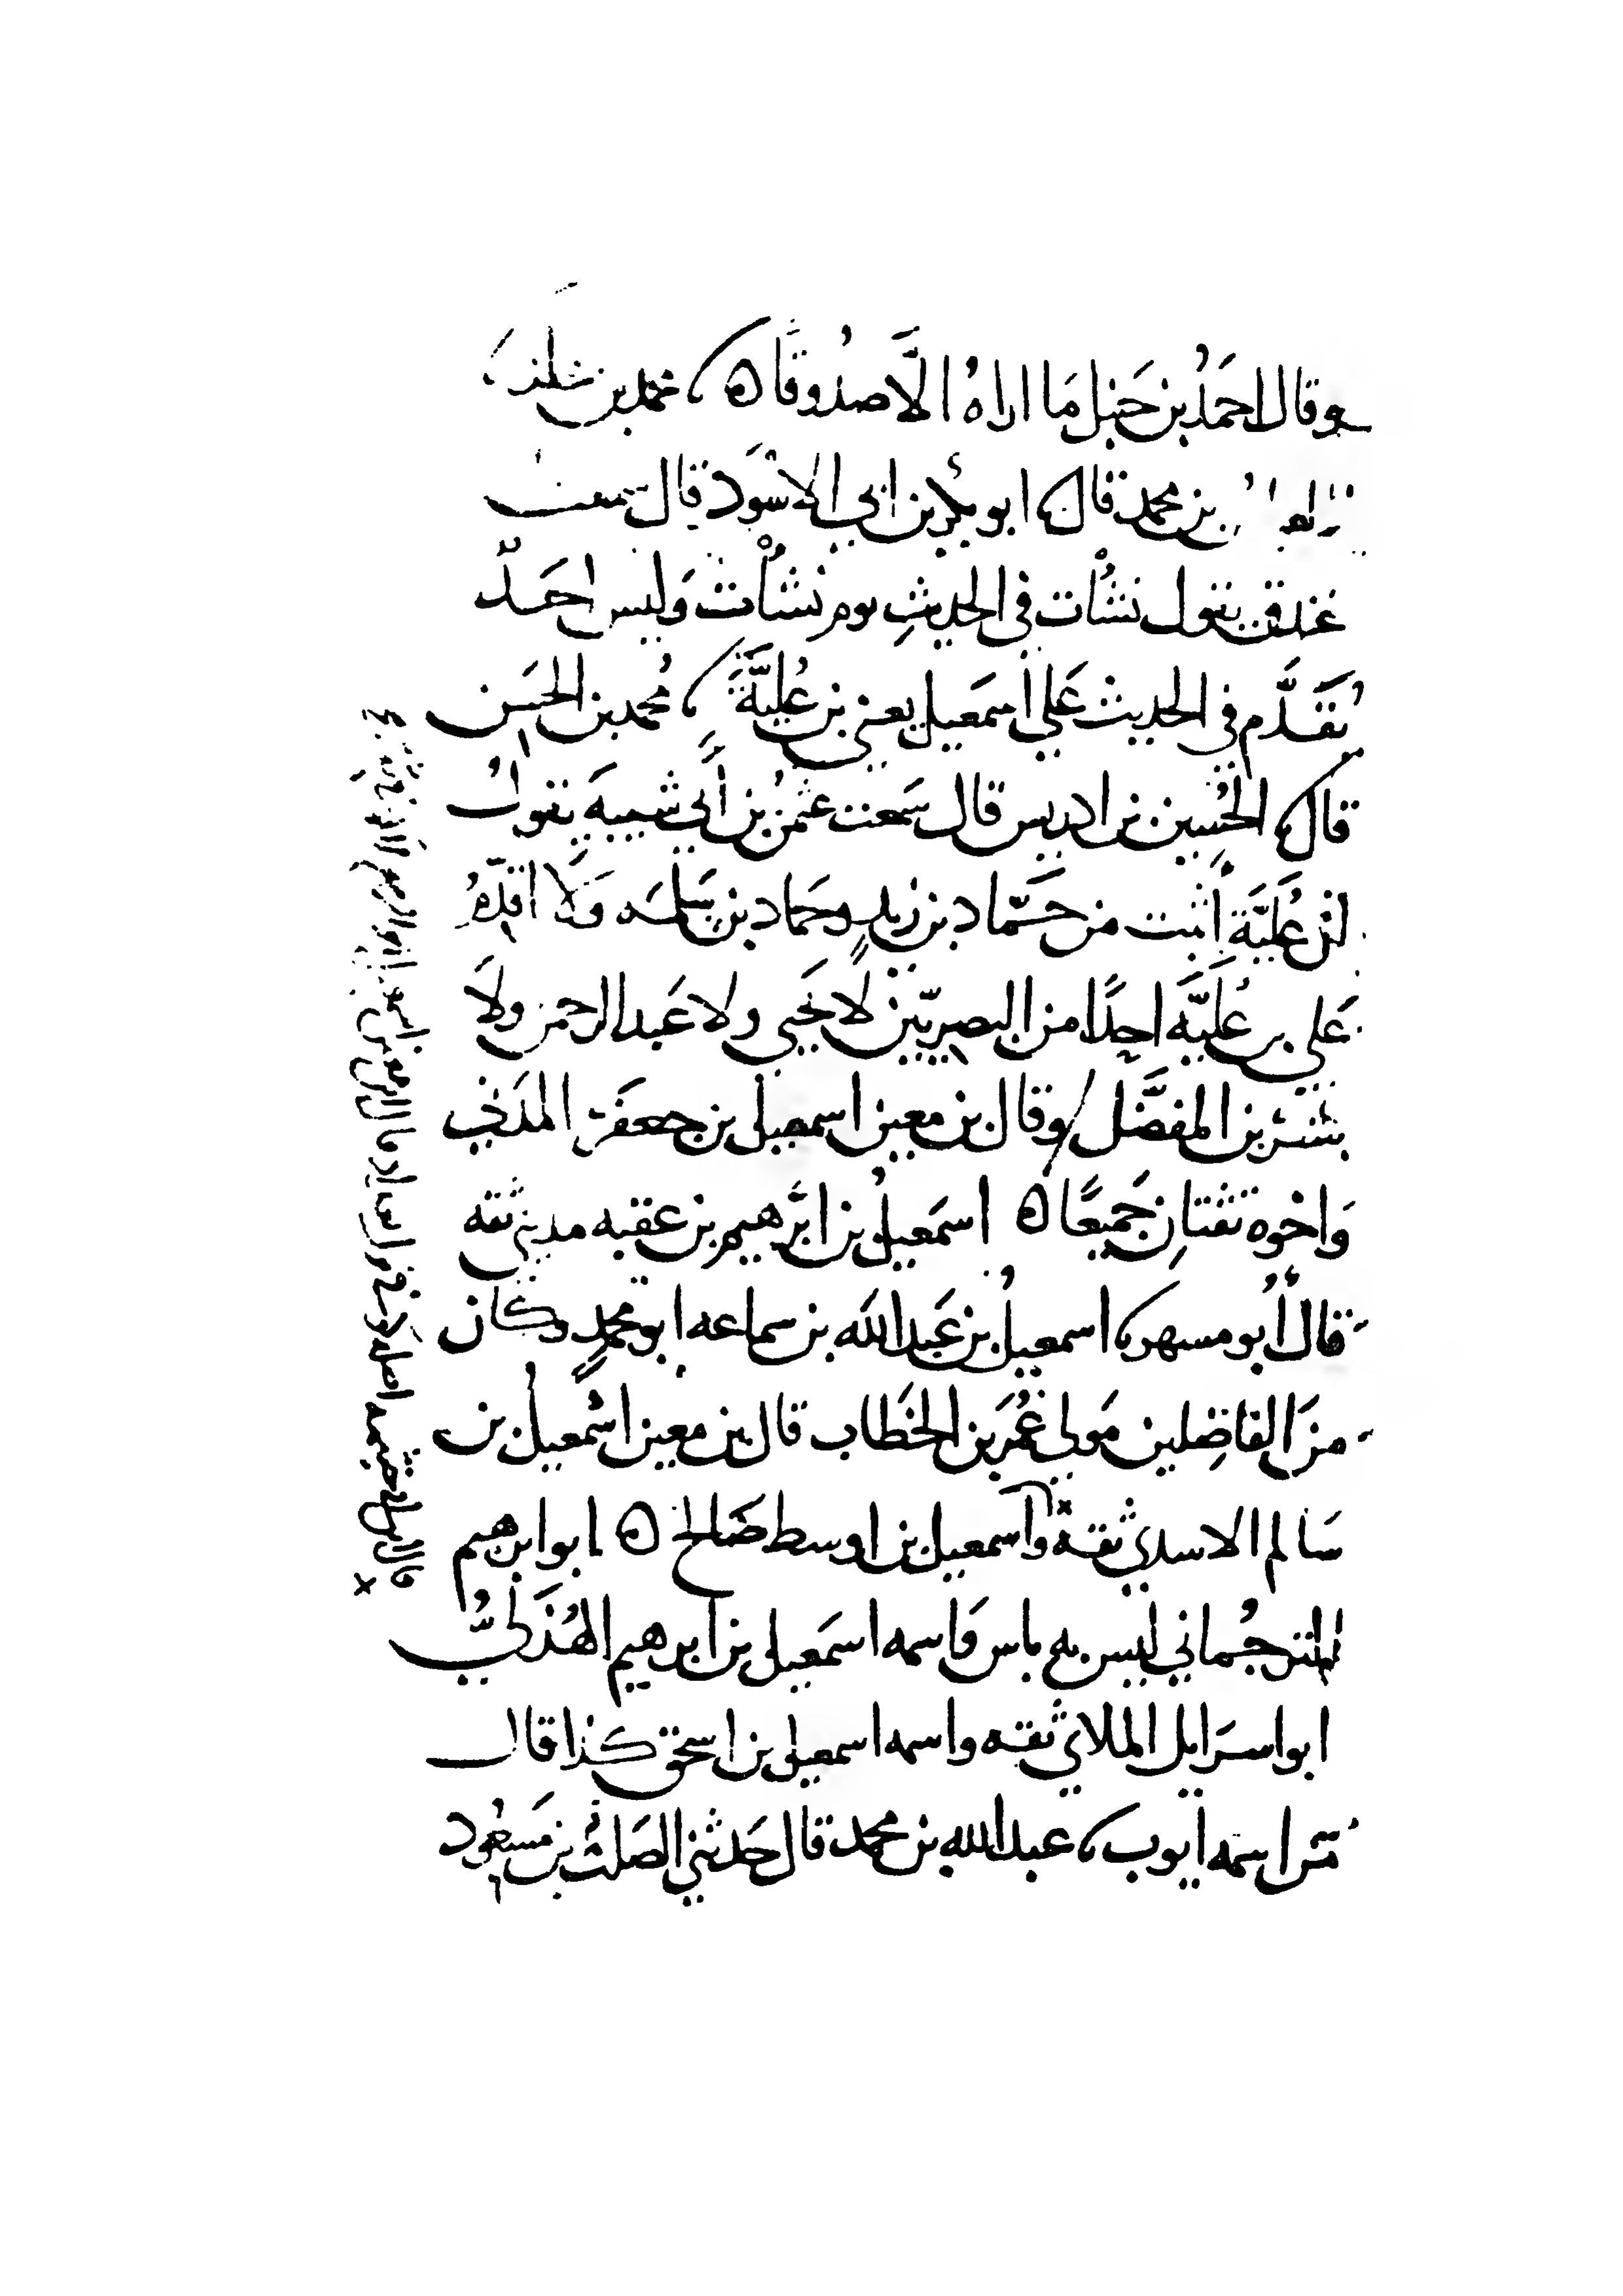 وقال احمَدُ بن حَنبل مَا اراهُ الَّا صدُوقًا ه محمد بن
بن محمد قال ابو بكر بن ابي الاسْوَد قال سمعت
غندر يقول نشأت في الحديثِ يوم نشأت وَليس احَدٌ
يُقَدَّم في الحديث عَلي اسمَعيل يعني بن عُليَّةَ محُمد بن الحسَن
قال الحُسين بن ادريس قال سَمعت عثمن بن أبي شيبهَ يقولُ
بنُ عُلَيَّة أثبت من حَمَّاد بن زيدٍ وحَماد بن سَلمه وَلا اقدّمُ
عَلي بن عُليَّه احدًا من البصريّين لا يَحيي ولا عَبد الرحمن ولا
بشر بن المفضَّل وقال بن معين اسمعيل بن جعفَر المَدَني
وَاخوه ثقتانِ جَميعًا ه اسمَعيلُ بن ابرَهيم بن عقبه مديني ثقه
قالَ أبُو مسهر اسمعيلُ بن عَبد الله بن سماعه ابو محمدٍ وكان
منَ الفاضِلين مَولي عُمَر بن الخَطاب قال بن معين اسْمعيلُ بن
سَالم الاسدي ثقةٌ واسمعيل بن اوسط صَالح ه ابو ابرهيم
الترجُماني ليس به باس وَاسمه اسمَعيل بن ابرهيم الهُذَليُّ
ابو اسرَايل الملاي ثقه واسمه اسمعيل بن اسحق كذا قال
اسمه ايوب عبد الله بن محمد قال حَدثني الصَلتُ بن مَسعُود